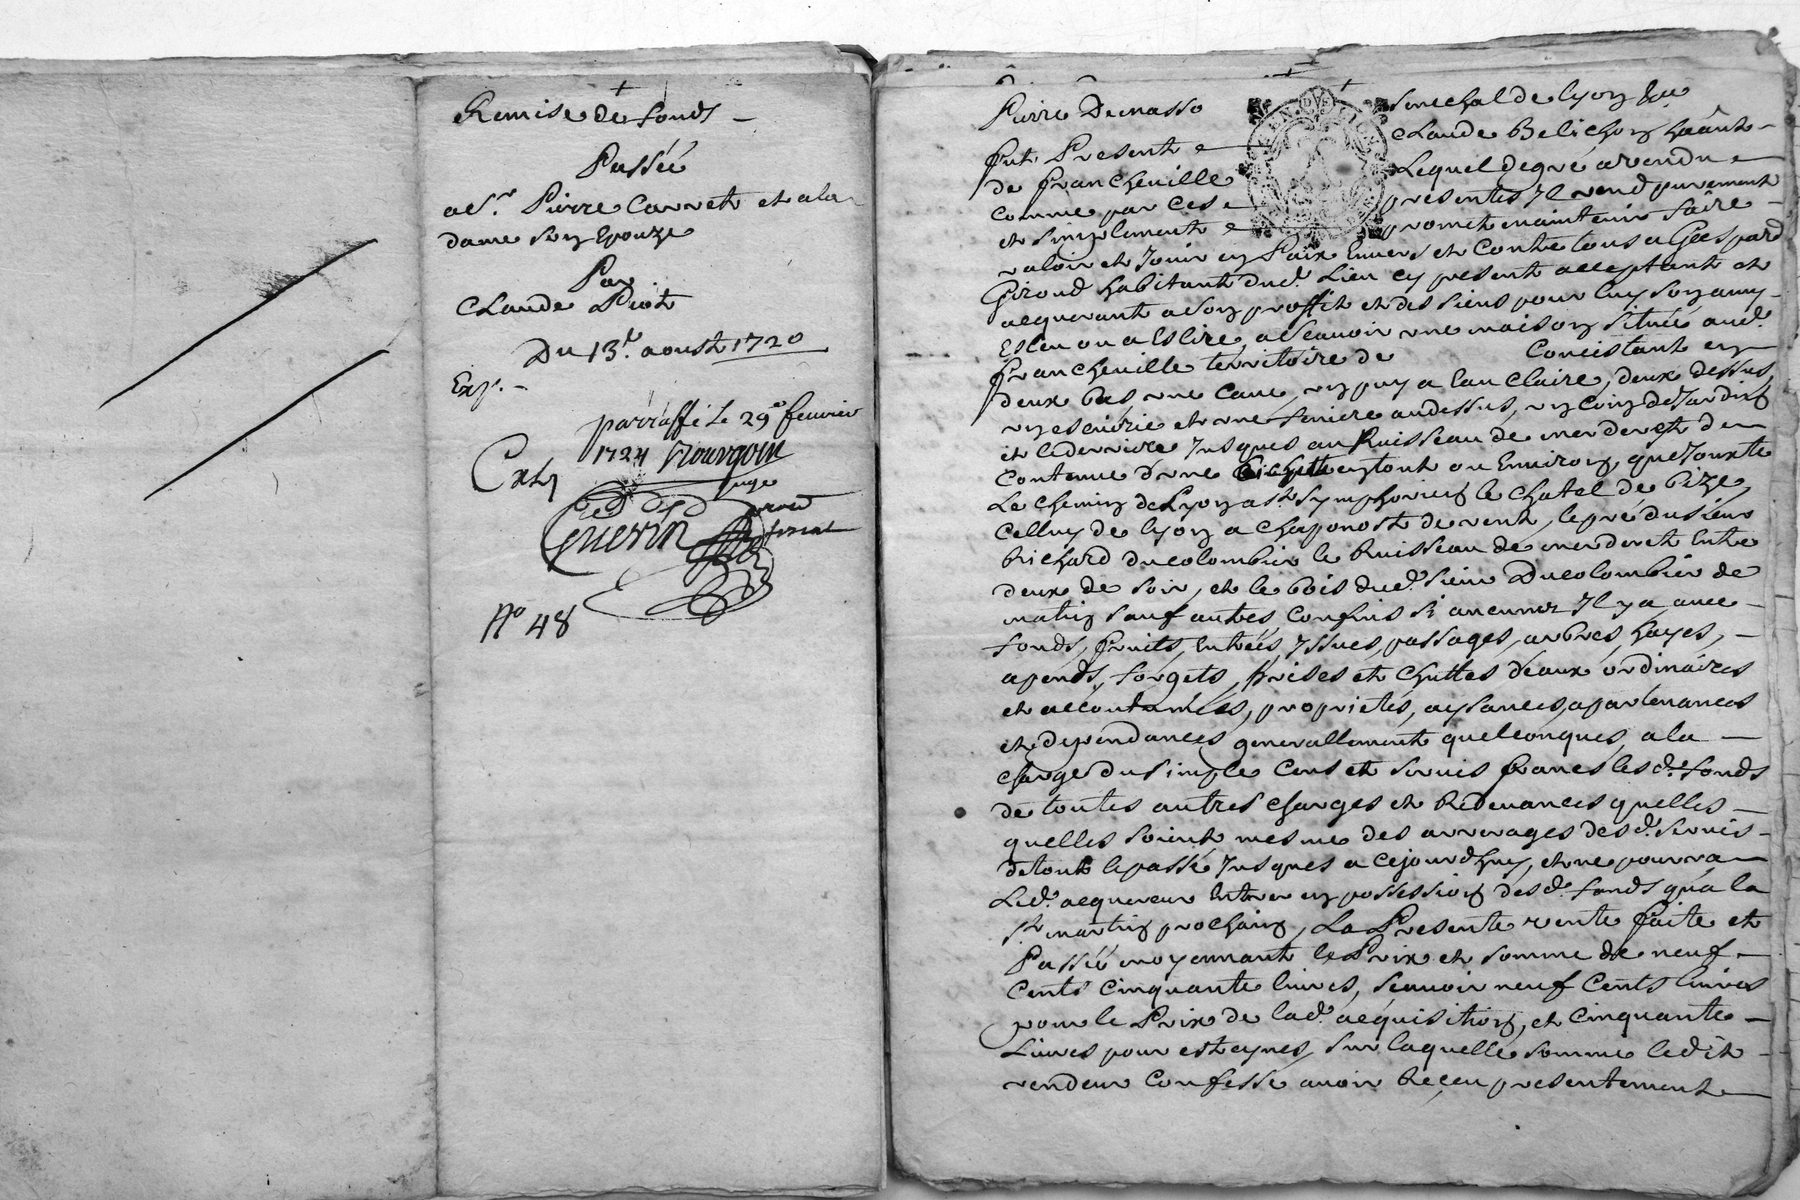 Remise de fonds
Passée
a Sr. Pierre Carret et a la
dame son Epouze
Par
Claude Piot
Du 13e. aoust 1720
Exp.
parraffé le 29e feuvrier
1724 Bourgoin
juge
Guerin
No 48
Pierre Demasso senechal de lyon &a
fut Present Claude Belichon hãnt
de francheuille Lequel de gré a vendu
comme par ces presentes Il vend purement
et simplement promet maintenir faire
valoir et Jouir en Paix Enuers et Contre tous a Gaspard
Giroud habitant dud. Lieu cy present acceptant et
acquerant a son proffit et des siens pour luy son amy
Esleu ou a Eslire, a Scauoir une maison située aud.
francheuille territoire de Concistant en
deux bas, une caue, un puy a l'au claire, deux dessus,
un escuirie et une feniere au dessus, un coin de Jardin
et le derriere Jusques au Ruisseau de merderet de
Contenue d'une Bichette en tout ou Enuiron, que Jouxte
Le chemin de Lyon a st. symphorien le chatel de bize,
Celluy de lyon a chaponost de vent, le pré du sieur
Richard du colombier le Ruisseau de merderet Entre
deux de soir, et le bois dud. sieur Ducolombier de
matin sauf autres Confins si aucunez Il y a, auec
fonds, fruits, Entrées, yssues, passages, arbres, hayes,
apends, forgets, prises et chuttes d'eaux ordinaires
et accoutumées, proprietés, aysances, apartenances
et dependances generallement quelconques, a la
charge du simple Cens et seruis francs les d. fonds
de toutes autres charges et Redeuances quelles
quelles soient mesme des arrerages des d. seruis
de tout le passé Jusques a ce jourd'huy, et ne pourra
Led. acquereur Entrer en possession des d. fonds qu'a la
st. martin prochain, La Presente vente faite et
Passée moyennant le Prix et somme de neuf
Cents Cinquante liures, scauoir neuf Cents liures
pour le Prix de lad. acquisition, et cinquante
Liures pour esteynes, sur laquelle somme ledit
vendeur Confesse auoir Reçeu presentement